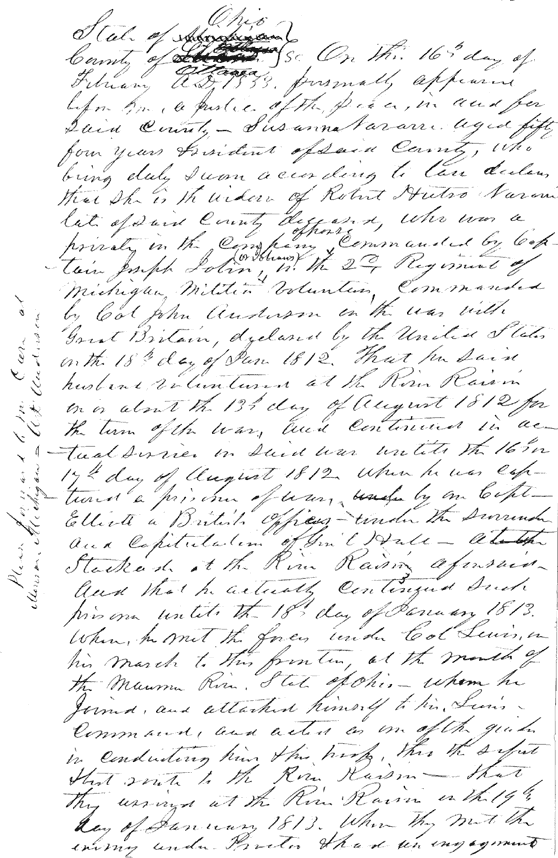 Ohio
State of
County of Ottawa } Sc On this 16th day of
February A.D. 1855. personally appeared
before me, a Justice of the Peace, in and for
said County — Susanna Navarre aged fifty
four years & resident of said County, who
being duly sworn according to law declares
that she is the widow of Robert Navarre
late of said County deceased, who was a
private in the Company of horse, Commanded by Cap-
tain Joseph in the 2nd Regiment of
Michigan Militia Volunteers, Commanded
by Col John Anderson in the war with
Great Britain, declared by the United States
on the 18th day of June 1812. That he said
husband volunteered at the River Raisin
on or about the 13th day of August 1812 for
the term of the war, and continued in ac-
tual service in said war untill the 16th or
17th day of August 1812 when he was cap-
tured a prisoner of war, by one Capt—
Elliott a British officer — under the surrender
and Capitulation of Gen'l Hull — at the
Stockade at the River Raisin aforesaid —
And that he actually continued such
prisoner untill the 18th day of January 1813.
When, he met the forces under Col Lewis, on
his march to this frontier, at the mouth of
the Maumee River. State of Ohio — whom he
Joined, and attached himself to him, Lewis —
Command, and acted as one of the guides
in conducting him & his troops, thro the safest
& best route to the River Raisin — that
they arrived at the River Raisin on the 19th
day of January 1813. When they met the
enemy under Proctor & had an engagement
Please forward to me Care at
Monroe, Michigan — Anderson